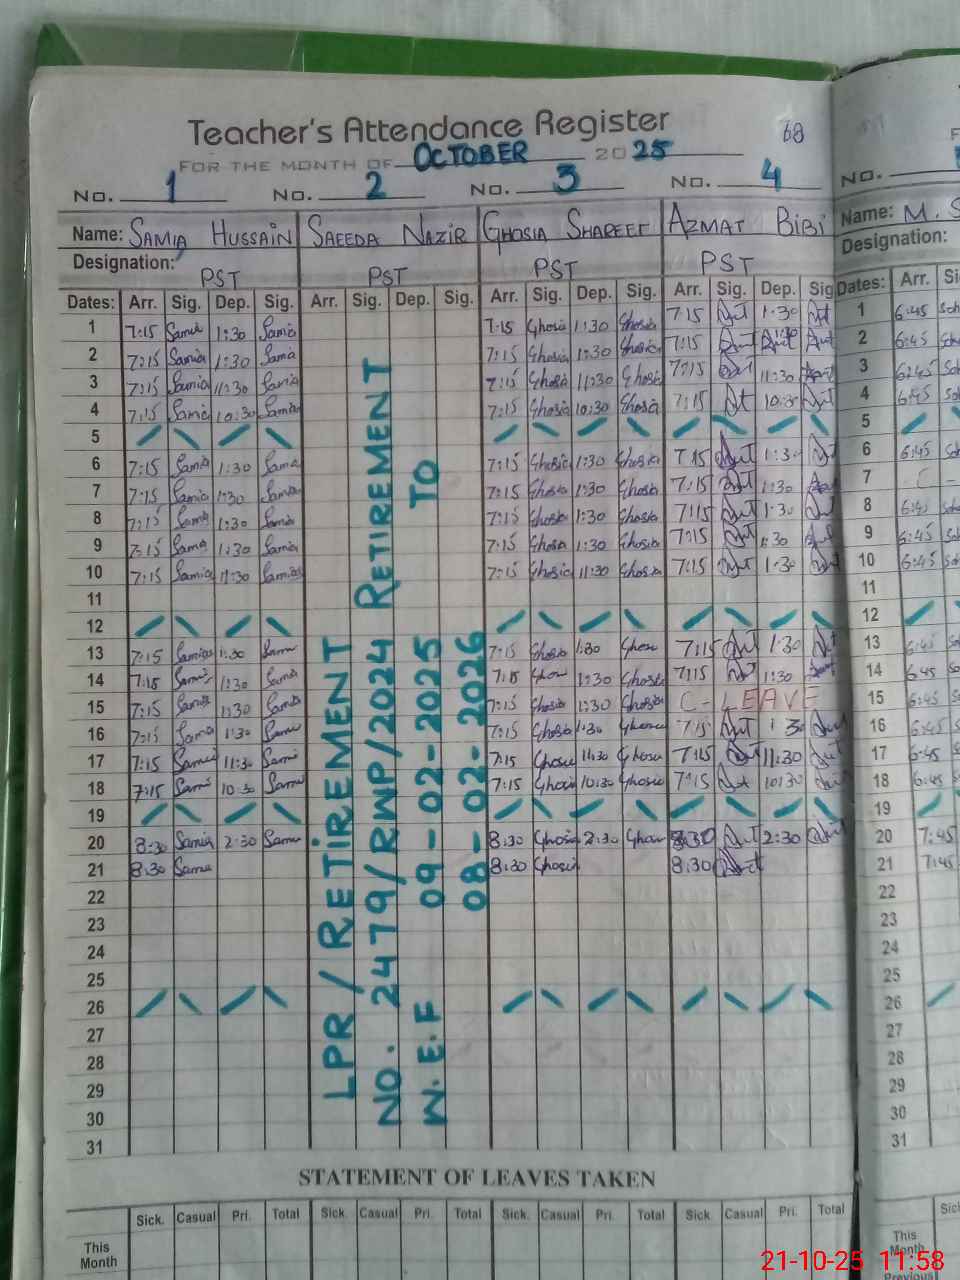 Teacher's Attendance Register
68
FOR THE MONTH OF OCTOBER 2025
No. 1 No. 2 No. 3 No. 4 No.
Name: SAMIA HUSSAIN SAEEDA NAZIR GHOSIA SHAREEF AZMAT BIBI Name: M. S
Designation: PST PST PST PST Designation:
Dates: Arr. Sig. Dep. Sig. Arr. Sig. Dep. Sig. Arr. Sig. Dep. Sig. Arr. Sig. Dep. Sig Dates: Arr. Si
1 7:15 Samia 1:30 Samia 7:15 Ghosia 1:30 Ghosia 7:15 1:30 1 6:45
2 7:15 Samia 1:30 Samia 7:15 Ghosia 1:30 Ghosia 7:15 1:30 2 6:45
3 7:15 Samia 11:30 Samia 7:15 Ghosia 11:30 Ghosia 7:15 11:30 3 6:45
4 7:15 Samia 10:30 Samia 7:15 Ghosia 10:30 Ghosia 7:15 10:3 4 6:45
5 5
6 7:15 Samia 1:30 Sama 7:15 Ghosia 1:30 Ghosia 7:15 1:3 6 6:45
7 7:15 Samia 1:30 Samia 7:15 Ghosia 1:30 Ghosia 7:15 1:30 7
8 7:15 Samia 1:30 Samia 7:15 Ghosia 1:30 Ghosia 7:15 1:30 8 6:45
9 7:15 Sama 1:30 Samia 7:15 Ghosia 1:30 Ghosia 7:15 1:30 9 6:45
10 7:15 Samia 11:30 Samia 7:15 Ghosia 11:30 Ghosia 7:15 1:30 10 6:45
11
12 12
13 7:15 Samia 1:30 7:15 Ghosia 1:30 Ghosia 7:15 1:30 13 6:45
14 7:15 1:30 Samia 7:15 1:30 Ghosia 7:15 1:30 14 6:45
15 7:15 Samia 1:30 Samia 7:15 Ghosia 1:30 Ghosia C-LEAVE 15 6:45
16 7:15 Samia 1:30 7:15 Ghosia 1:30 Ghosia 7:15 1:30 16 6:45
17 7:15 Samia 11:30 Samia 7:15 Ghosia 11:30 Ghosia 7:15 11:30 17 6:45
18 7:15 Samia 10:30 7:15 Ghosia 10:30 Ghosia 7:15 10:30 18 6:45
19 19
20 8:30 Samia 2:30 Samia 8:30 Ghosia 2:30 Ghosia 8:30 2:30 20 7:45
21 8:30 Samia 8:30 Ghosia 8:30 21 7:45
22 22
23 23
24 24
25 25
26 26
27 27
28 28
29 29
30 30
31 31
LPR / RETIREMENT
NO. 2479/RWP/2024 RETIREMENT
W.E.F 09-02-2025 TO
08-02-2026
STATEMENT OF LEAVES TAKEN
Sick. Casual Pri. Total Sick. Casual Pri. Total Sick. Casual Pri. Total Sick. Casual Pri. Total
This Month This Month
Previous
21-10-25 11:58